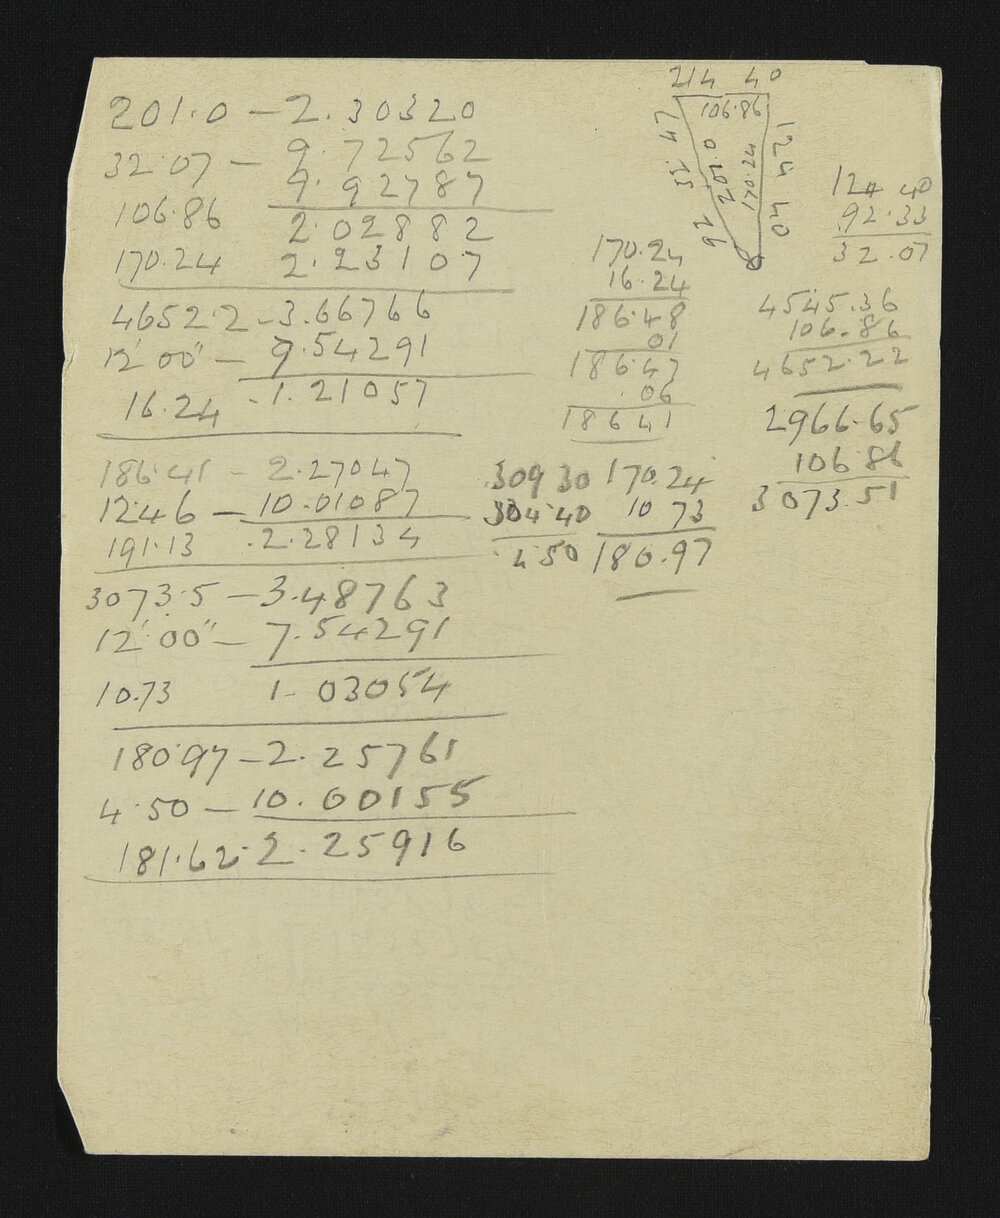 201.0 — 2.30320
32.07 — 9.72562
9.92787
106.86 2.02882
170.24 2.23107
4652.2 - 3.66766
12' 00" — 9.54291
16.24 - 1.21057
186.41 - 2.27047
12.46 — 10.01087
191.13 . 2.28134
3073.5 — 3.48763
12' 00" — 7.54291
10.73 1. 03054
180.97 — 2.25761
4.50 — 10.00155
181.62 . 2.25916
214 40
106.86
124 40
170.24
201.0
92 33 47
124 40
92.33
32.07
170.24
16.24
186.48
01
186.47
.06
186 41
4545.36
106.86
4652.22
2966.65
106 86
3073.51
309 30
304.40
4.50
170.24
10 73
180.97